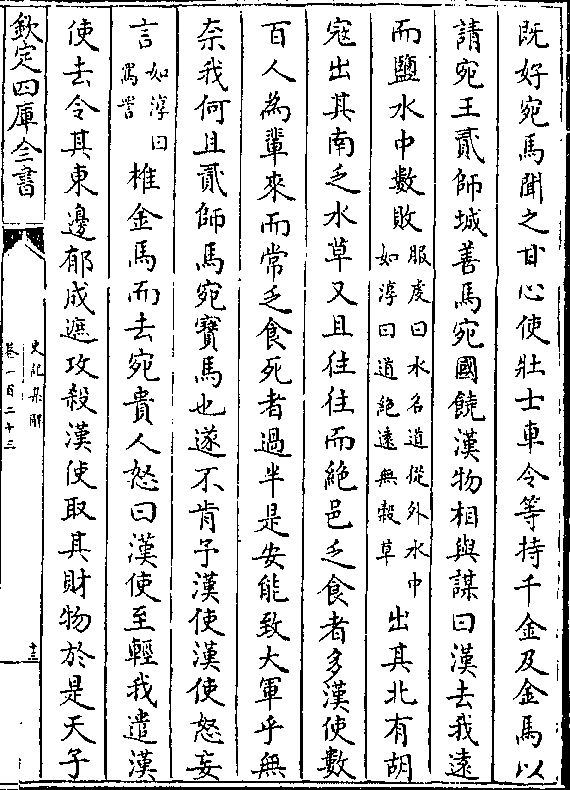 既好宛馬聞之甘心使壯士車令等持千金及金馬以
請宛王貳師城善馬宛國饒漢物相與謀曰漢去我遠
而鹽水中數敗服䖍曰水名道從外水中如淳曰道絶遠無穀草出其北有胡
寇出其南乏水草又且往往而絶邑乏食者多漢使數
百人為輩來而常乏食死者過半是安能致大軍乎無
奈我何且貳師馬宛寶馬也遂不肯予漢使漢使怒妄
言如淳曰罵詈椎金馬而去宛貴人怒曰漢使至輕我遣漢
使去令其東邊郁成遮攻殺漢使取其財物於是天子
欽定四庫全書
史記集解
卷一百二十三
十三